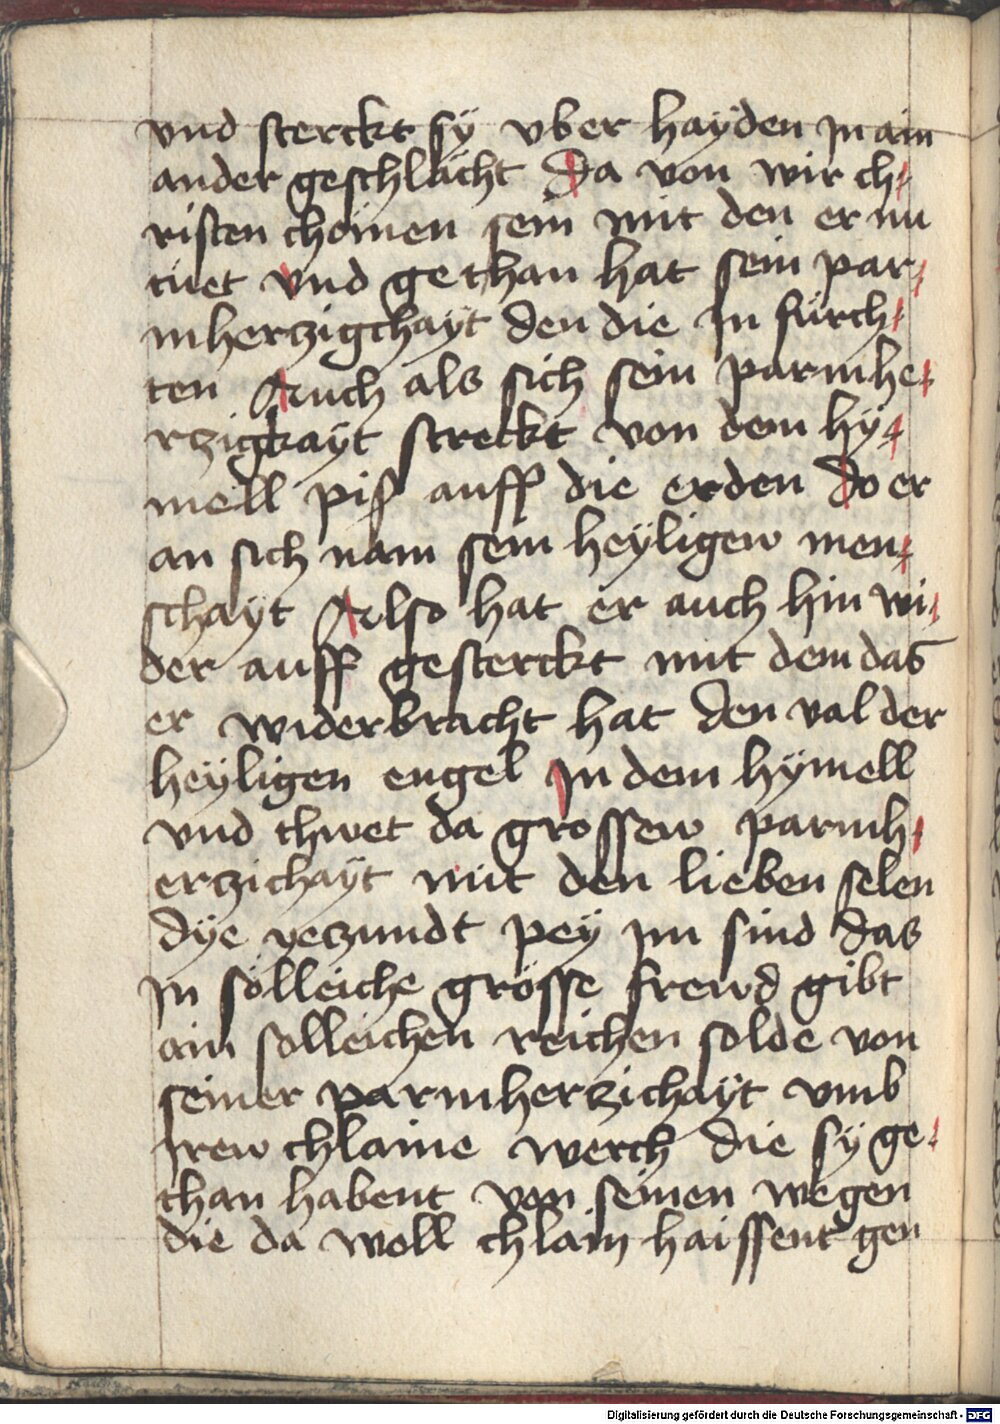 vnd sterckt sÿ vber haÿden in ain
ander geschlächt Da von wir ch⸗
risten chömen sein mit den er nu
tuet vnd gethan hat sein par⸗
mherzigchaÿt den die in fürch⸗
ten Auch als sich sein parmhe⸗
rzigkaÿt streckt von dem hÿ⸗
mell piß auff die erden do er
an sich nam sein heÿligew men⸗
schaÿt Also hat er auch hin wi⸗
der auff gesterckt mit dem das
er widerbracht hat den val der
heÿligen engel in dem hÿmell
vnd thuet da grossew parmh⸗
erzichaÿt mit den lieben selen
dÿe yeczundt peÿ im sind das
in sölleiche grösse frewd gibt
ain solleichen reichen solde von
seiner parmherzichaÿt vmb
irew chlaine werch die sÿ ge⸗
than habent von seinen wegen
die da woll chlain haissent gen
Digitalisierung gefördert durch die Deutsche Forschungsgemeinschaft - DFG